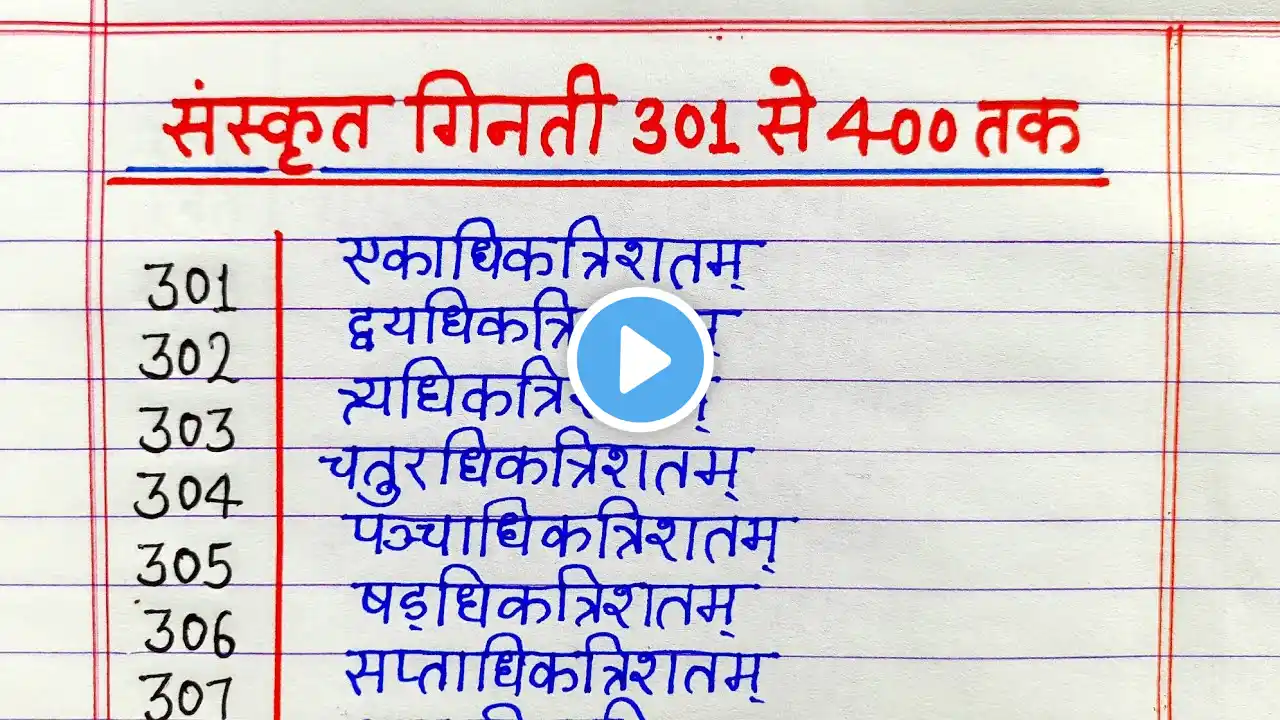 संस्कृत गिनती 301 से 400 तक
301 एकाधिकत्रिशतम्
302
303
304 चतुरधिकत्रिशतम्
305 पञ्चाधिकत्रिशतम्
306 षड्धिकत्रिशतम्
307 सप्ताधिकत्रिशतम्